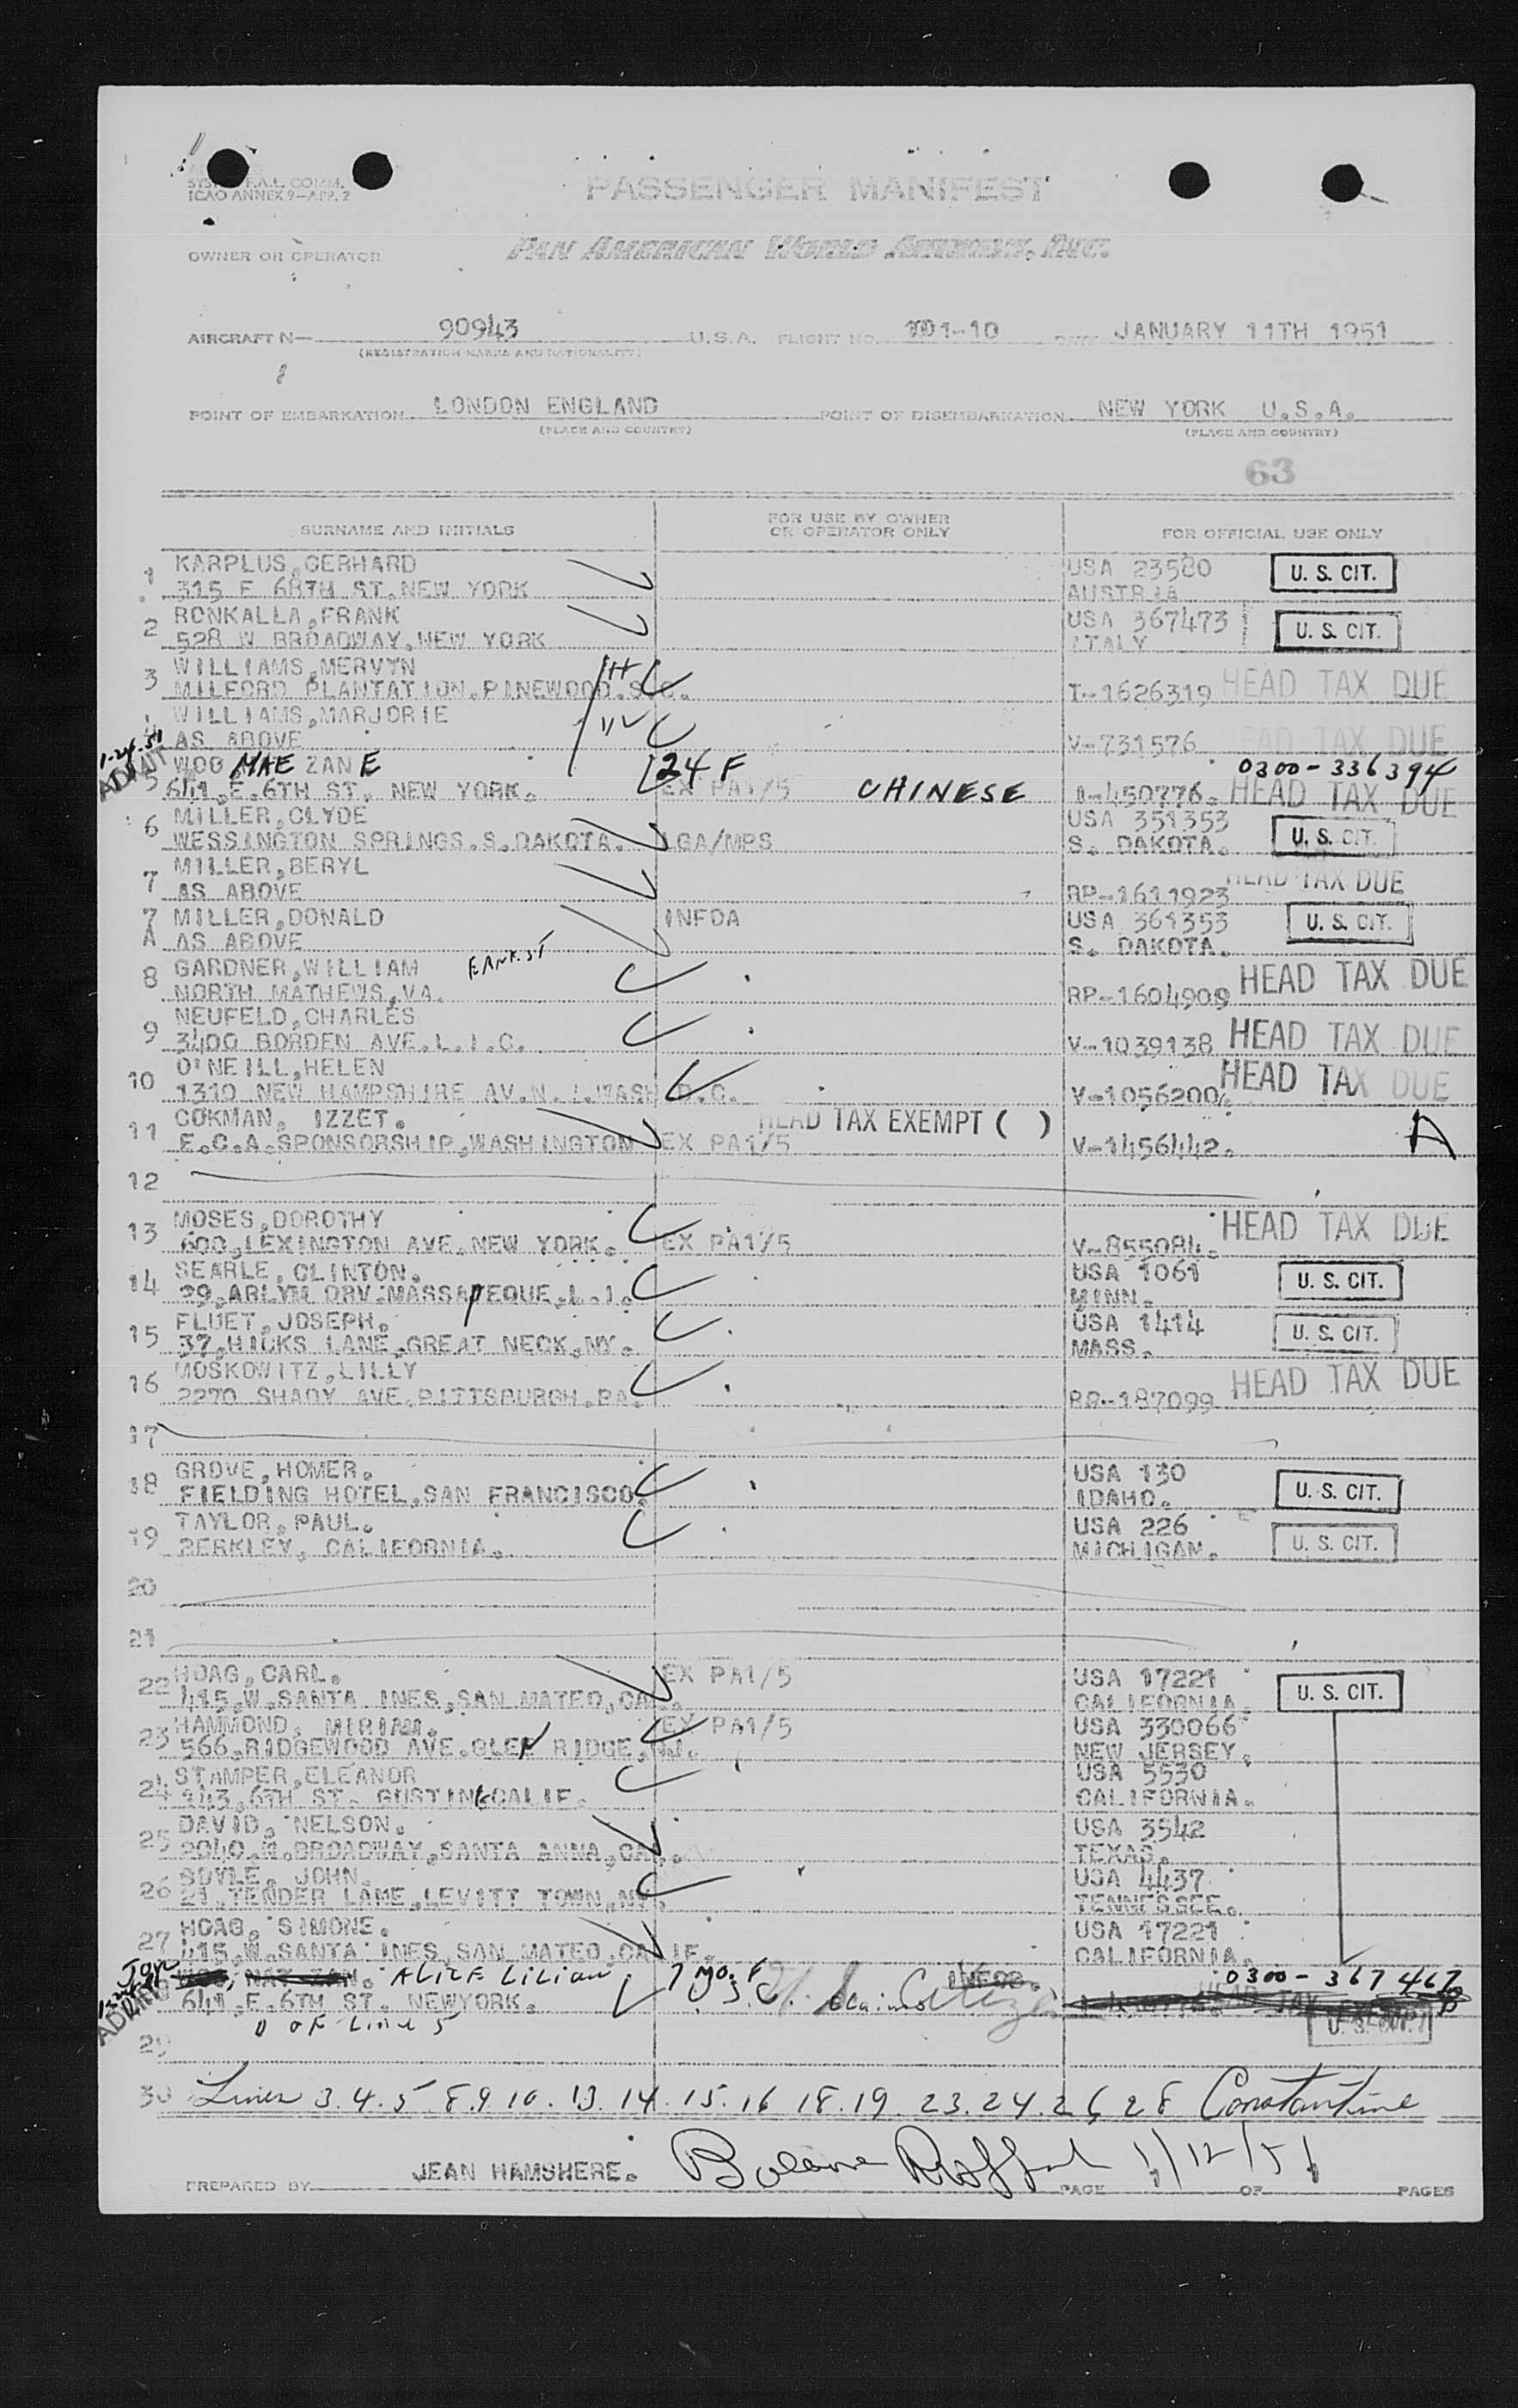 F.A.L. COMM.
ICAO ANNEX 9-APP. 2
PASSENGER MANIFEST
OWNER OR OPERATOR PAN AMERICAN WORLD AIRWAYS, INC.
AIRCRAFT N- 90943 U.S.A. FLIGHT NO. 101-10 DATE JANUARY 11TH 1951
(REGISTRATION MARKS AND NATIONALITY)
POINT OF EMBARKATION LONDON ENGLAND POINT OF DISEMBARKATION NEW YORK U.S.A.
(PLACE AND COUNTRY) (PLACE AND COUNTRY)
63
SURNAME AND INITIALS FOR USE BY OWNER OR OPERATOR ONLY FOR OFFICIAL USE ONLY
1 KARPLUS,GERHARD USA 23580 U. S. CIT.
315 E 68TH ST.NEW YORK AUSTRIA
2 RONKALLA,FRANK USA 367473 U. S. CIT.
528 W BROADWAY,NEW YORK ITALY
3 WILLIAMS,MERVYN
MILFORD PLANTATION.PINEWOOD.S.C. I-1626319 HEAD TAX DUE
WILLIAMS,MARJORIE
AS ABOVE V-731576 HEAD TAX DUE
1-24-51 ADMIT
5 WOO MAE ZANE 24 F 0300-336394
641.E.6TH ST. NEW YORK. EX PA1/5 CHINESE I-450776. HEAD TAX DUE
6 MILLER,CLYDE USA 351353 U. S. CIT.
WESSINGTON SPRINGS.S.DAKOTA. LGA/MPS S. DAKOTA.
7 MILLER,BERYL
AS ABOVE RP-1611923 HEAD TAX DUE
7 MILLER,DONALD INFDA USA 361353 U. S. CIT.
A AS ABOVE S. DAKOTA.
8 GARDNER,WILLIAM
NORTH MATHEWS,VA. RP-1604909 HEAD TAX DUE
9 NEUFELD,CHARLES
3400 BORDEN AVE.L.I.C. V-1039138 HEAD TAX DUE
10 O'NEILL,HELEN
1310 NEW HAMPSHIRE AV.N. .WASH D.C. V-1056200 HEAD TAX DUE
11 COKMAN, IZZET. HEAD TAX EXEMPT ( )
E.C.A.SPONSORSHIP,WASHINGTON EX PA1/5 V-1456442. A
12
13 MOSES,DOROTHY HEAD TAX DUE
600,LEXINGTON AVE.NEW YORK. EX PA1/5 V-855084.
14 SEARLE, CLINTON. USA 1061 U. S. CIT.
29,ARLYM DRV.MASSAPEQUE,L.I. MINN.
15 FLUET,JOSEPH. USA 1414 U. S. CIT.
37,HICKS LANE,GREAT NECK,NY. MASS.
16 MOSKOWITZ,LILLY HEAD TAX DUE
2270 SHADY AVE.PITTSBURGH.PA. RP-187099
17
18 GROVE,HOMER. USA 130 U. S. CIT.
FIELDING HOTEL,SAN FRANCISCO. IDAHO.
19 TAYLOR,PAUL. USA 226 U. S. CIT.
BERKLEY, CALIFORNIA. MICHIGAN.
20
21
22 HOAG,CARL. EX PA1/5 USA 17221 U. S. CIT.
415,W.SANTA INES,SAN MATEO,CAL. CALIFORNIA.
23 HAMMOND, MIRIAM. EX PA1/5 USA 330066
566,RIDGEWOOD AVE.GLEN RIDGE,NJ. NEW JERSEY.
24 STAMPER,ELEANOR USA 5530
243,6TH ST. GUSTINE CALIF. CALIFORNIA.
25 DAVID, NELSON. USA 3542
2040.N.BROADWAY,SANTA ANNA,CAL. TEXAS.
26 BOYLE, JOHN. USA 4437
21,TENDER LANE,LEVITT TOWN,NY. TENNESSEE.
27 HOAG, SIMONE. USA 17221
415,W.SANTA INES,SAN MATEO,CALIF. CALIFORNIA.
ADMIT ALICE LILIAN 7 MO. F 0300-367462
641.E.6TH ST. NEWYORK. U.S.C. claims U. S. CIT.
OF Line 5
29
30 Lines 3.4.5 8.9 10.13.14.15.16 18.19.23.24.26 28 Constantine
PREPARED BY JEAN HAMSHERE. 1/12/51 PAGE OF PAGES